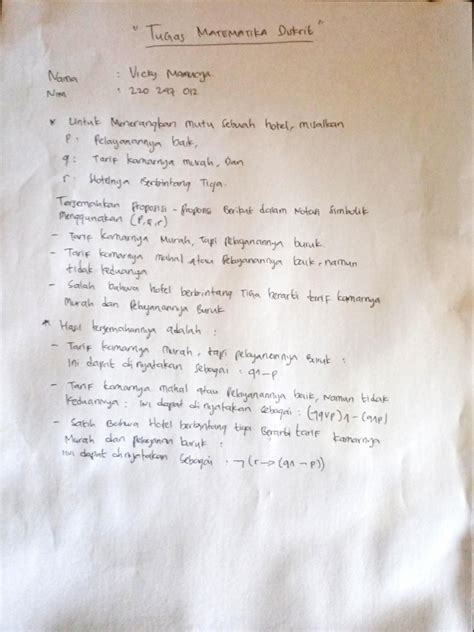 " TUGAS MATEMATIKA Diskrit "
Nama : Vicky Manuoya.
Nim : 220 247 012
* Untuk Menerangkan mutu Sebuah hotel, misalkan
P : Pelayanannya baik,
q : Tarif kamarnya murah, Dan
r : Hotelnya Berbintang Tiga.
Terjemahkan Proposisi - Proposisi Berikut dalam Notasi Simbolik
Menggunakan (P, q, r)
- Tarif Kamarnya Murah, Tapi Pelayanannya buruk.
- Tarif kamarnya mahal atau Pelayanannya baik, namun
tidak keduanya
- Salah bahwa hotel berbintang Tiga berarti tarif kamarnya
Murah dan Pelayanannya Buruk
* Hasil terjemahannya adalah :
- Tarif kamarnya Murah, tapi pelayanannya Buruk :
Ini dapat dinyatakan sebagai : q∧-p
- Tarif kamarnya mahal atau Pelayanannya baik, Namun tidak
Keduanya : Ini dapat dinyatakan sebagai : (¬q∨p)∧-(q∧p)
- Salah Bahwa Hotel berbintang tiga Berarti tarif kamarnya
Murah dan pelayanan buruk :
Ini dapat dinyatakan Sebagai : ¬(r→(q∧-p))